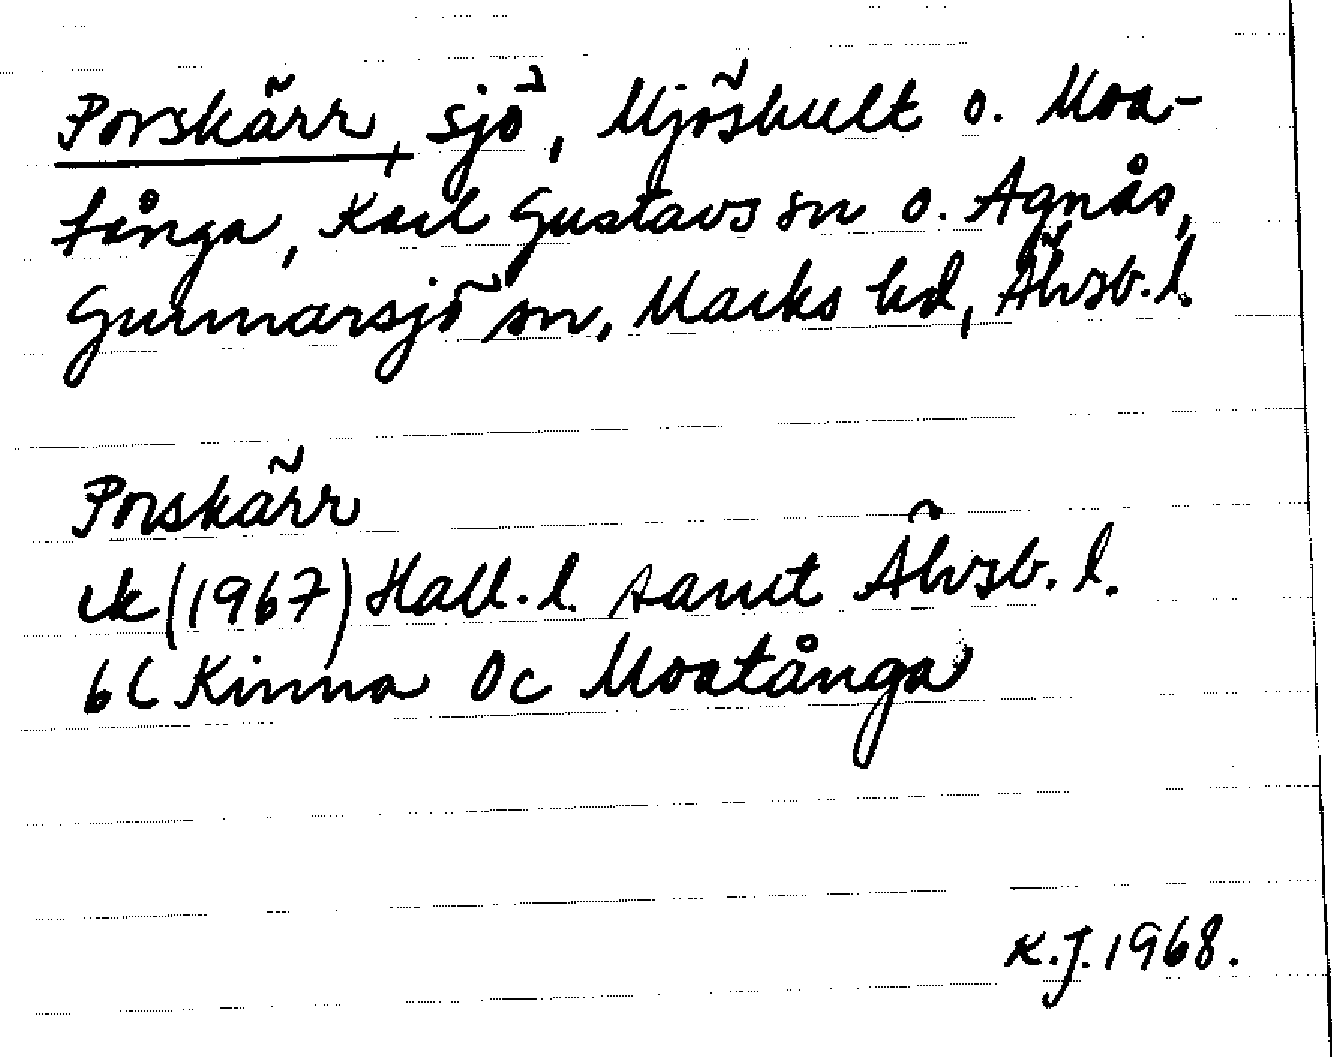 Porskärr, sjö, Mjöshult o. Moa-
tånga, Karl Gustavs sn o. Agnås,
Gunnarsjö sn, Marks hd, Älvsb. l.
Porskärr
ek (1967) Hall. l. samt Älvsb. l.
6C Kinna 0c Moatånga
K.J. 1968.